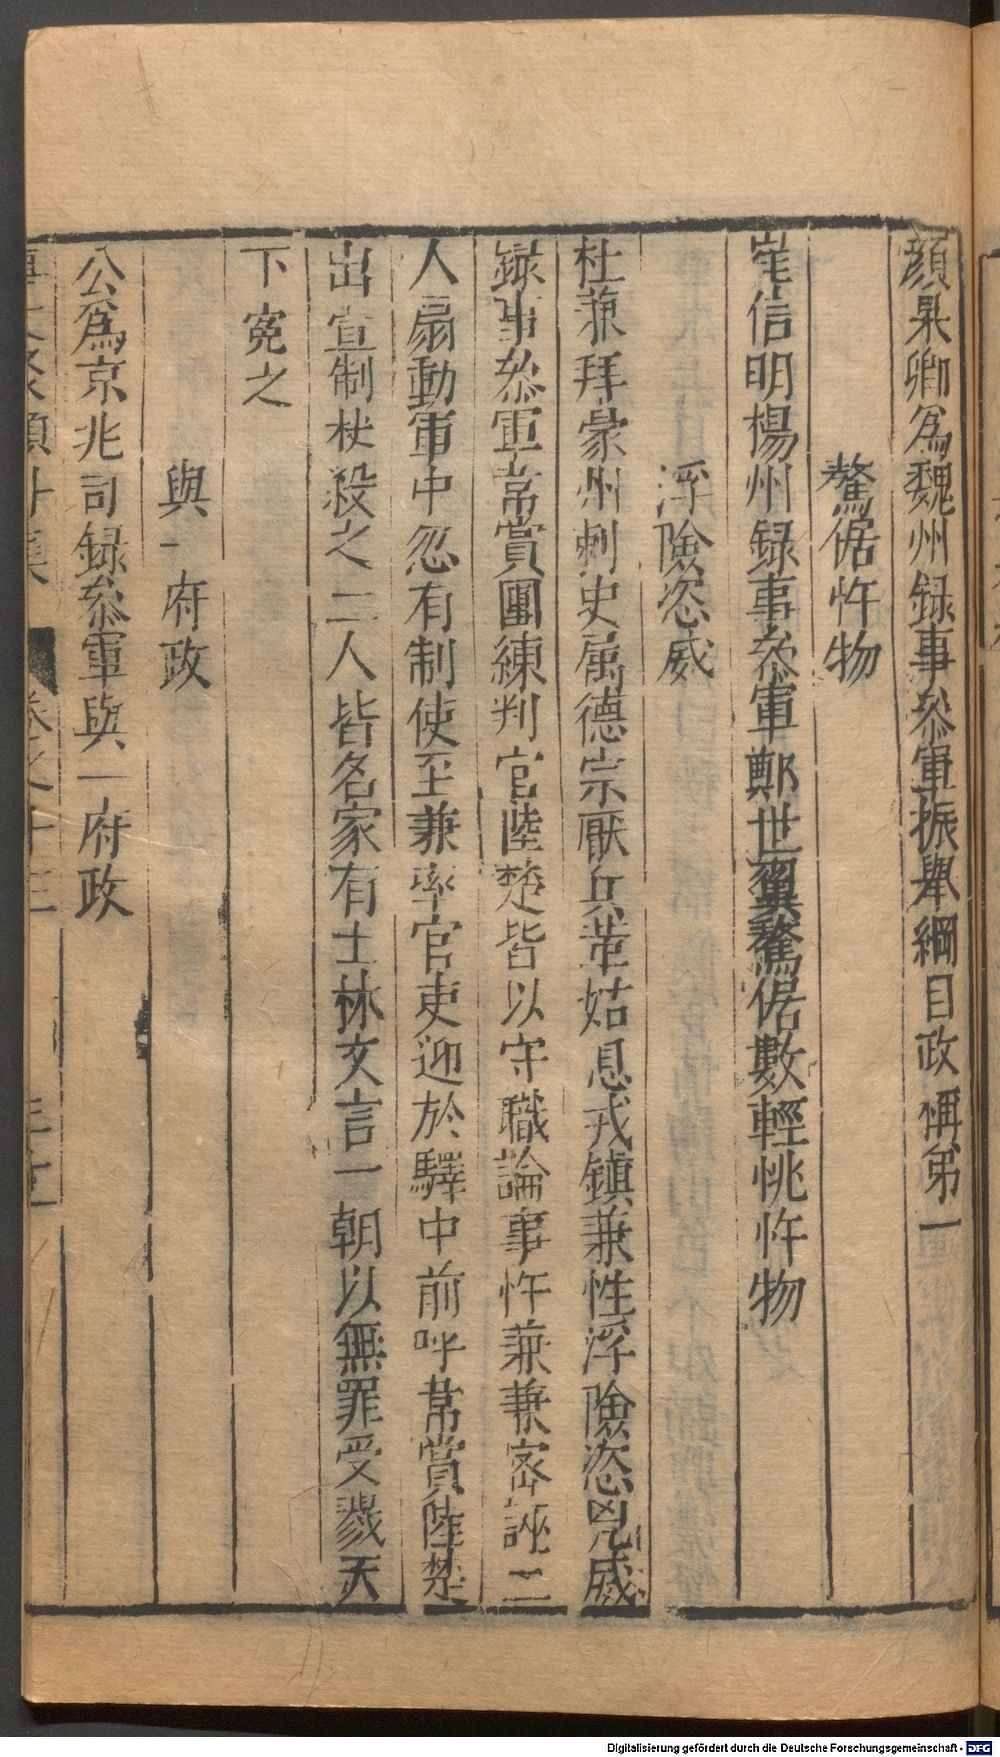 顏杲卿爲魏州録事叅軍振舉綱目政稱第一
驁倨忤物
崔信明楊州録事叅軍鄭世翼驁倨數輕恌忤物
浮險恣威
杜兼拜濠州刺史属德宗厭兵革姑息戎鎮兼性浮險恣兇威
録事叅軍韋賞團練判官陸楚皆以守職論事忤兼兼密誣二
人扇動軍中忽有制使至兼率官吏迎於驛中前呼韋賞陸楚
出宣制杖殺之二人皆名家有士林文言一朝以無罪受戮天
下寃之
與一府政
公爲京兆司録叅軍與一府政
類卄集 卷之十三
Digitalisierung gefördert durch die Deutsche Forschungsgemeinschaft - DFG